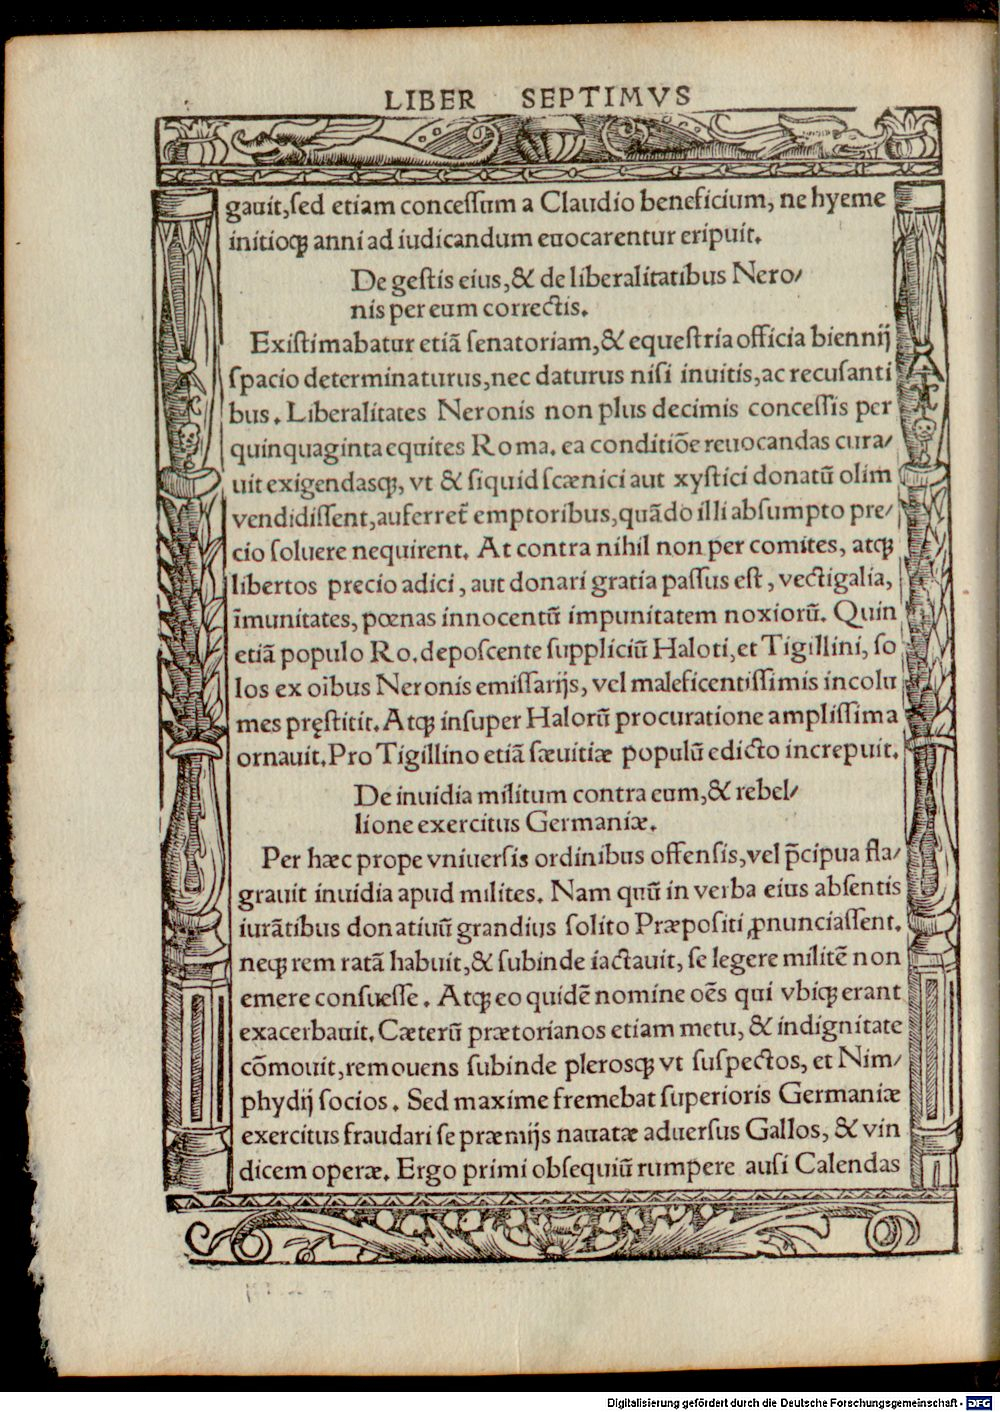 LIBER SEPTIMVS
gauit,ſed etiam conceſſum a Claudio beneficium, ne hyeme
initioqꝫ anni ad iudicandum euocarentur eripuit.
De geſtis eius,& de liberalitatibus Nero/
nis per eum correctis.
Exiſtimabatur etiã ſenatoriam,& equeſtria officia biennij
ſpacio determinaturus,nec daturus niſi inuitis,ac recuſanti
bus. Liberalitates Neronis non plus decimis conceſſis per
quinquaginta equites Roma. ea conditiõe reuocandas cura/
uit exigendasqꝫ, vt & ſiquid ſcænici aut xyſtici donatũ olim
vendidiſſent,auferret᷑ emptoribus,quãdo illi abſumpto pre/
cio ſoluere nequirent. At contra nihil non per comites, atqꝫ
libertos precio adici, aut donari gratia paſſus eſt, vectigalia,
ĩmunitates, pœnas innocentũ impunitatem noxiorũ. Quin
etiã populo Ro. depoſcente ſuppliciũ Haloti,et Tigillini, ſo
los ex oĩbus Neronis emiſſarijs, vel maleficentiſſimis incolu
mes pręſtitit. Atqꝫ inſuper Halorũ procuratione ampliſſima
ornauit.Pro Tigillino etiã ſæuitiæ populũ edicto increpuit.
De inuidia militum contra eum,& rebel/
lione exercitus Germaniæ.
Per hæc prope vniuerſis ordinibus offenſis,vel p̃cipua fla/
grauit inuidia apud milites. Nam quũ in verba eius abſentis
iurãtibus donatiuũ grandius ſolito Præpoſiti ꝓnunciaſſent.
neqꝫ rem ratã habuit,& ſubinde iactauit, ſe legere militẽ non
emere conſueſſe. Atqꝫ eo quidẽ nomine oẽs qui vbiqꝫ erant
exacerbauit. Cæterũ prætorianos etiam metu, & indignitate
cõmouit,remouens ſubinde plerosqꝫ vt ſuſpectos, et Nim/
phydij ſocios. Sed maxime fremebat ſuperioris Germaniæ
exercitus fraudari ſe præmijs nauatæ aduerſus Gallos, & vin
dicem operæ. Ergo primi obſequiũ rumpere auſi Calendas
Digitalisierung gefördert durch die Deutsche Forschungsgemeinschaft - DFG